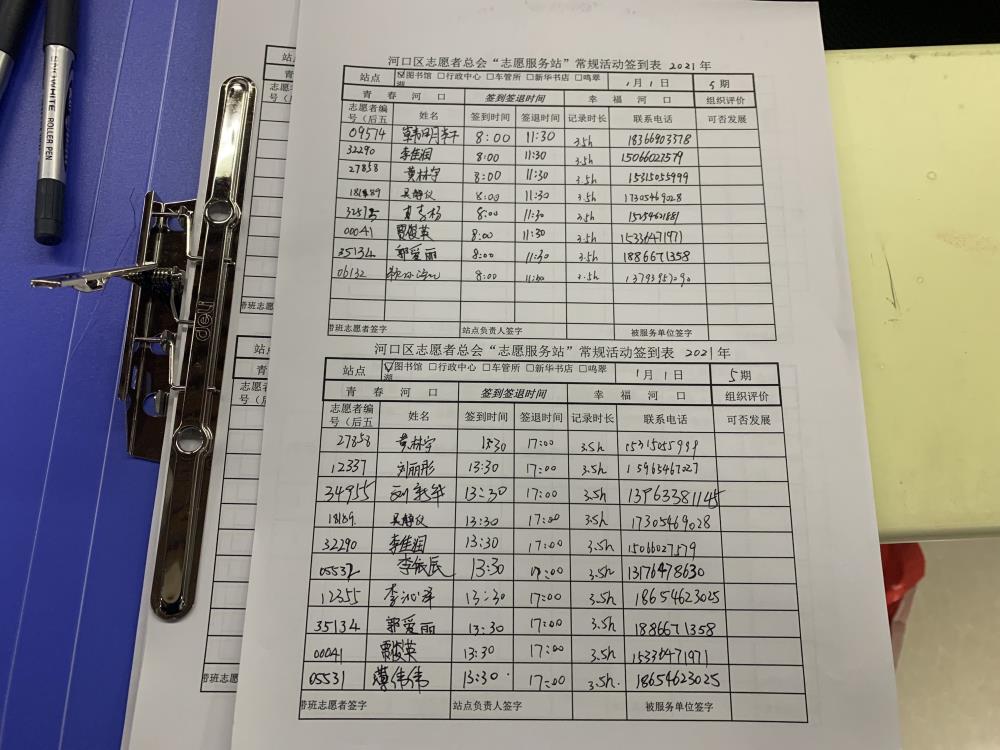 SNOWHITE ROLLER PEN
deli
河口区志愿者总会“志愿服务站”常规活动签到表 2021年
站点 ☑图书馆 □行政中心 □车管所 □新华书店 □鸣翠湖 1月1日 5期
青春河口 签到签退时间 幸福河口 组织评价
志愿者编号（后五 姓名 签到时间 签退时间 记录时长 联系电话 可否发展
09574 8:00 11:30 3.5h 18366903578
32290 李佳润 8:00 11:30 3.5h 15066027579
27858 黄林宇 8:00 11:30 3.5h 15315055999
18189 吴静仪 8:00 11:30 3.5h 17305469028
8:00 11:30 3.5h
00041 贾俊英 8:00 11:30 3.5h 15336471971
35134 郭爱丽 8:00 11:30 3.5h 1886671358
06132 8:00
带班志愿者签字 站点负责人签字 被服务单位签字
河口区志愿者总会“志愿服务站”常规活动签到表 2021年
站点 ☑图书馆 □行政中心 □车管所 □新华书店 □鸣翠湖 1月1日 5期
青春河口 签到签退时间 幸福河口 组织评价
志愿者编号（后五 姓名 签到时间 签退时间 记录时长 联系电话 可否发展
27858 黄林宇 13:30 17:00 3.5h 15315055999
12337 刘丽彤 13:30 17:00 3.5h 15963467027
34955 13:30 17:00 3.5h 13963381145
18189 吴静仪 13:30 17:00 3.5h 17305469028
32290 李佳润 13:30 17:00 3.5h 15066027579
05532 李依辰 13:30 17:00 3.5h 13176478630
12355 李沁泽 13:30 17:00 3.5h 18654623025
35134 郭爱丽 13:30 17:00 3.5h 1886671358
00041 贾俊英 13:30 17:00 3.5h 15336471971
05531 薄伟伟 13:30 17:00 3.5h 18654623025
带班志愿者签字 站点负责人签字 被服务单位签字